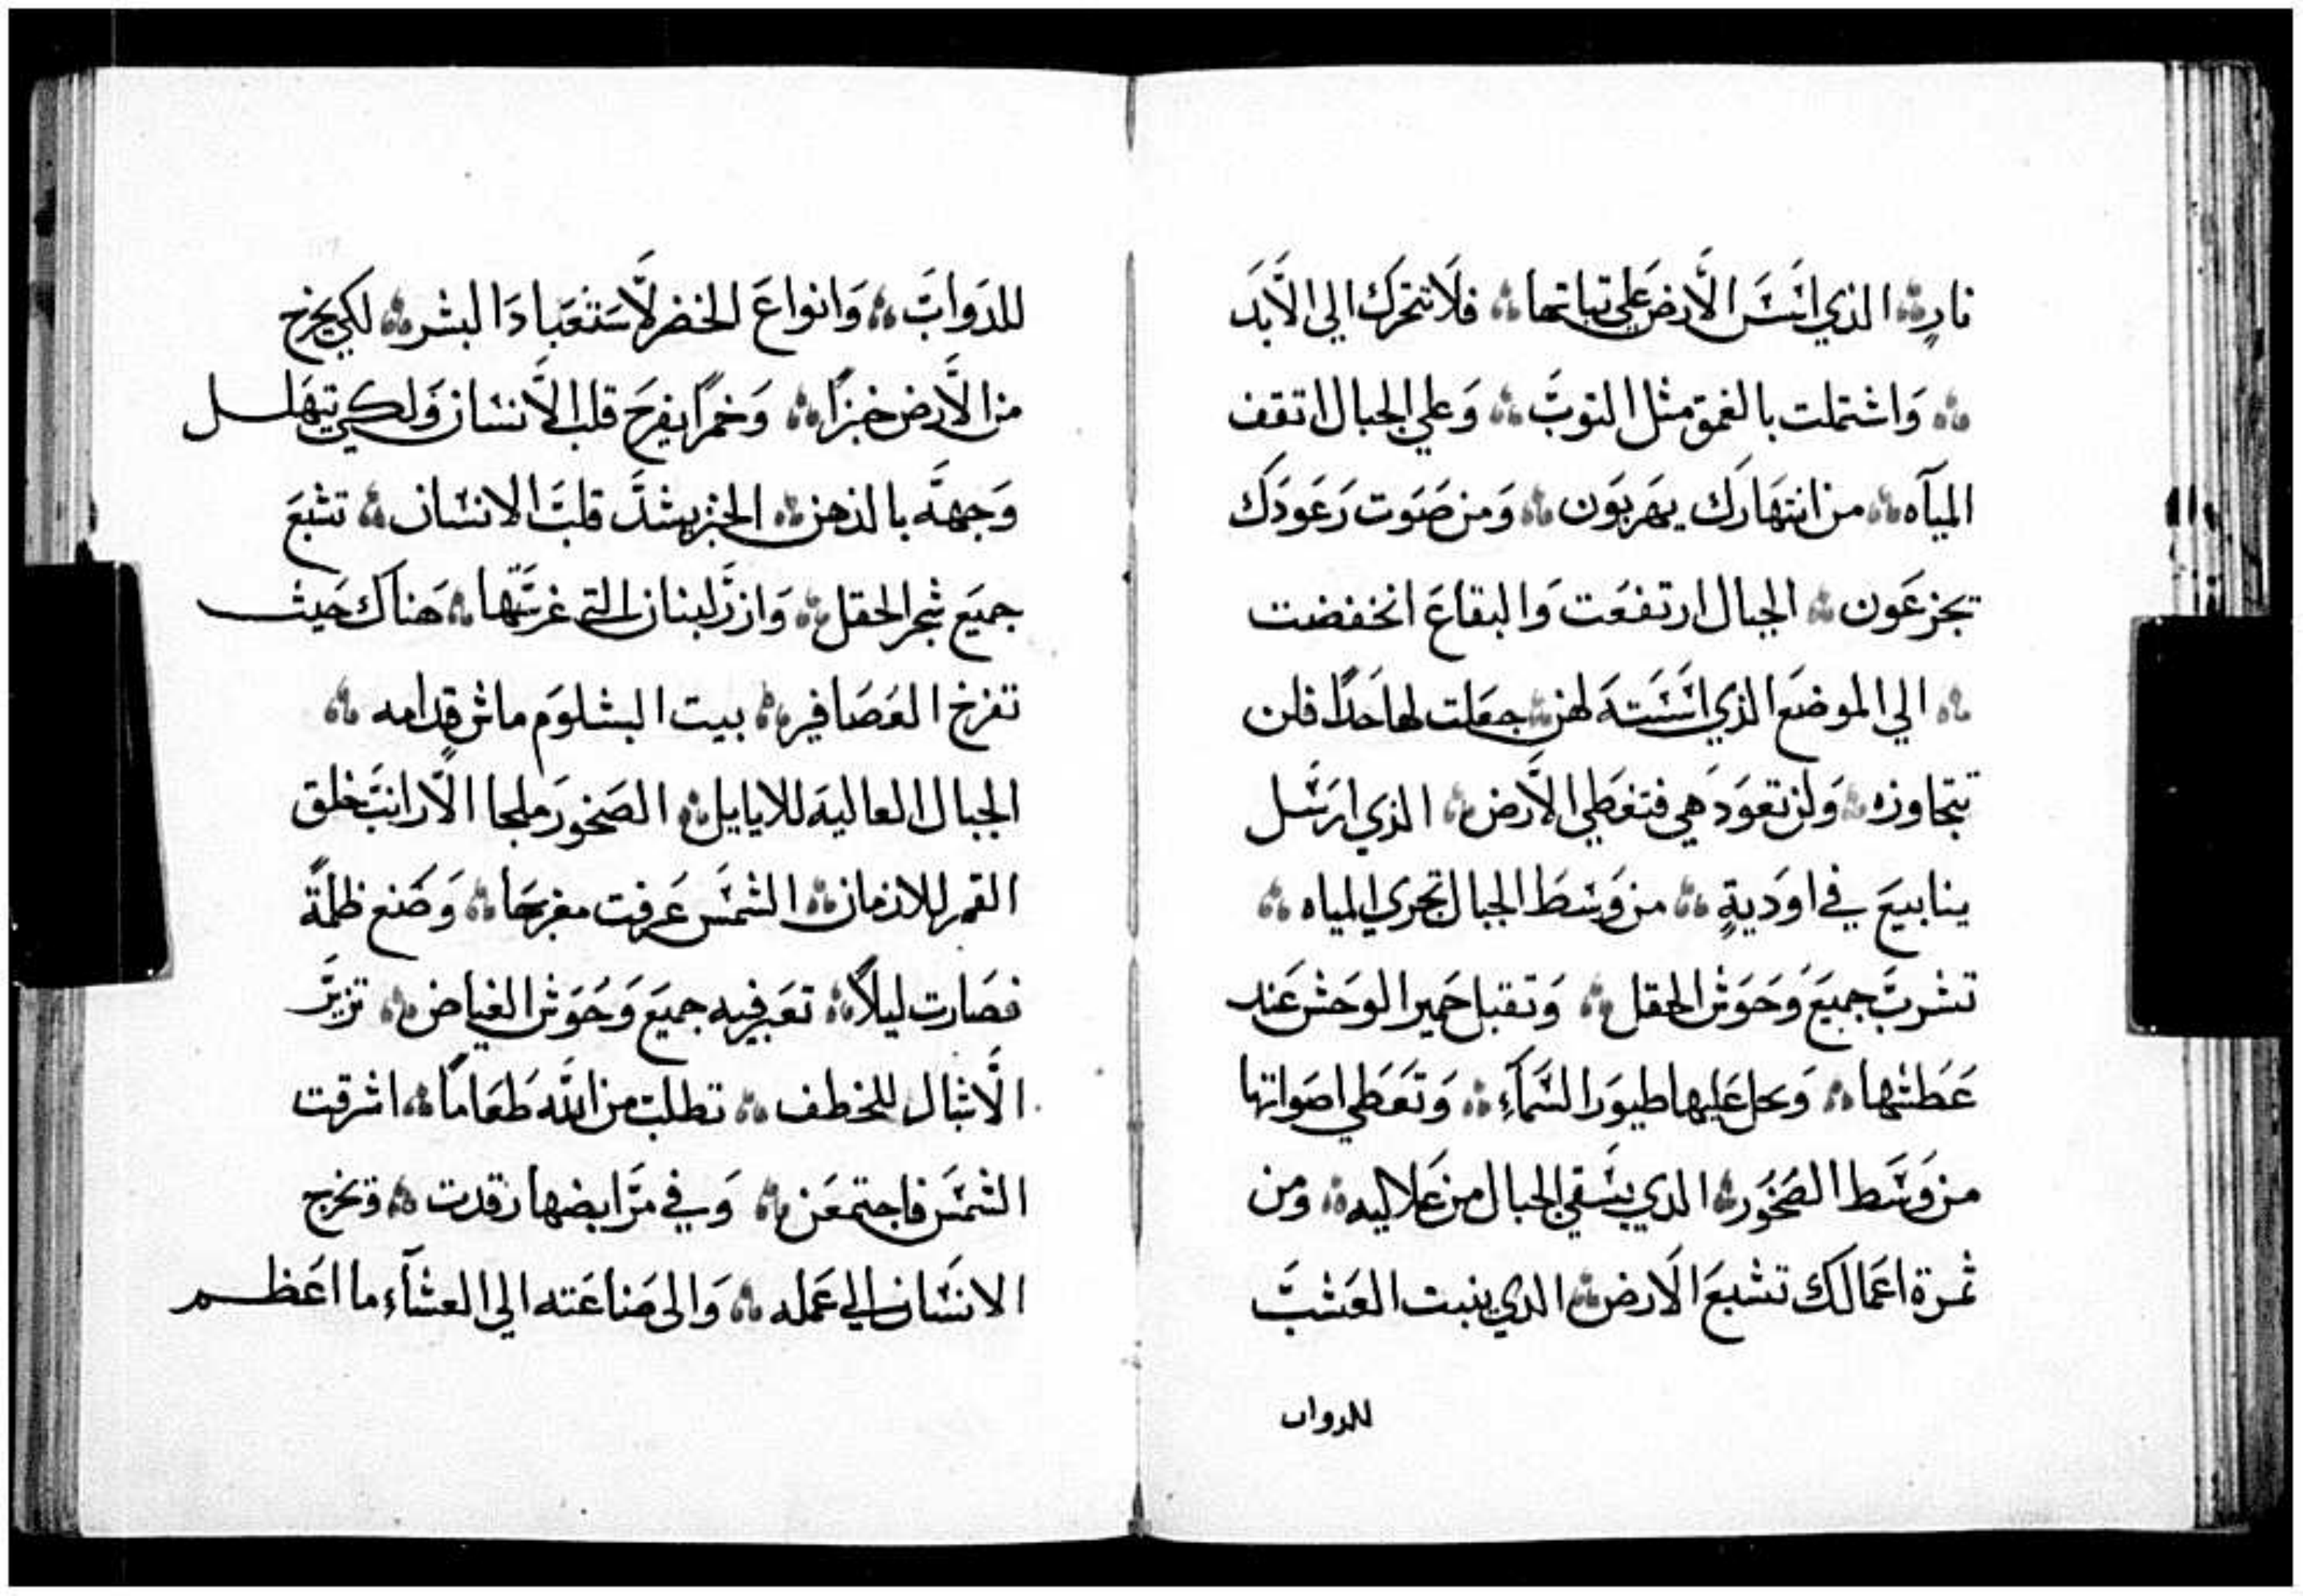 نارٍ ۞ الذي اسَّسَ الأرضَ علي تباتها ۞ فلا تتحرَك الي الأبَد
۞ وَاشتملت بالغمق مثل التوبَ ۞ وَعلي الجبال اتقف
الميآه ۞ من انتهَارَك يهَربَون ۞ وَمن صَوَت رَعَودَك
يجزعَون ۞ الجبال ارتفعَت وَالبقاعَ انخفضت
۞ الي الموضعَ الذي اسَّسَتهَ لهن ۞ جعَلت لها حَدًا فلن
تتجاوزه ۞ وَلن تعوَد هي فتغطي الأرض ۞ الذي ارسَل
ينابيعَ في اوَديةٍ ۞ من وَسَط الجبال تجري المياه ۞
تشربَ جميعَ وَحَوَش الحقل ۞ وَتقبل حَمير الوحَش عَند
عَطَشها ۞ وَيحل عَليها طيوَر السَمآءِ ۞ وَتعَطي اصَواتها
من وَسَط الصَخوَر ۞ الدي يسَقي الجبال من عَلاليه ۞ وَمن
ثمرة اعَمالَك تشبعَ الأرض ۞ الدي ينبت العَشبَ
للدواب
للدَوابَ ۞ وَانواعَ الخضر لأسَتعَبادَ البشر ۞ لكي يخرج
من الأرض خبزًا ۞ وَخمرًا يفرحَ قلب الأنسَان وَلكي يتهَلل
وَجههَ بالدهن ۞ الخبز يشدَ قلبَ الانسَان ۞ تشبعَ
جميَع شجر الحقل ۞ وَارزَ لبنان التي غرسَتها ۞ هَناك حَيث
تفرخ العَصَافير ۞ بيت البشلوَم ماش قدامه ۞
الجبال العاليهَ للايايل ۞ الصَخوَر ملجا الأرانبَ خلق
القمر للازمان ۞ الشمسَ عَرفت مغربَها ۞ وَصَنع ظلمةً
فصَارت ليلاً ۞ تعَبر فيه جميَع وَحَوَش الغياض ۞ تزيرَ
الأشبال للخطف ۞ تطلبَ من الله طعَامًا ۞ اشرقت
الشمسَ فاجتمعَن ۞ وَفي مرَابضها رقدت ۞ وَتخرج
الانسَان الي عَمله ۞ وَالي صَناعَته الي العشآءِ ما اعَظم